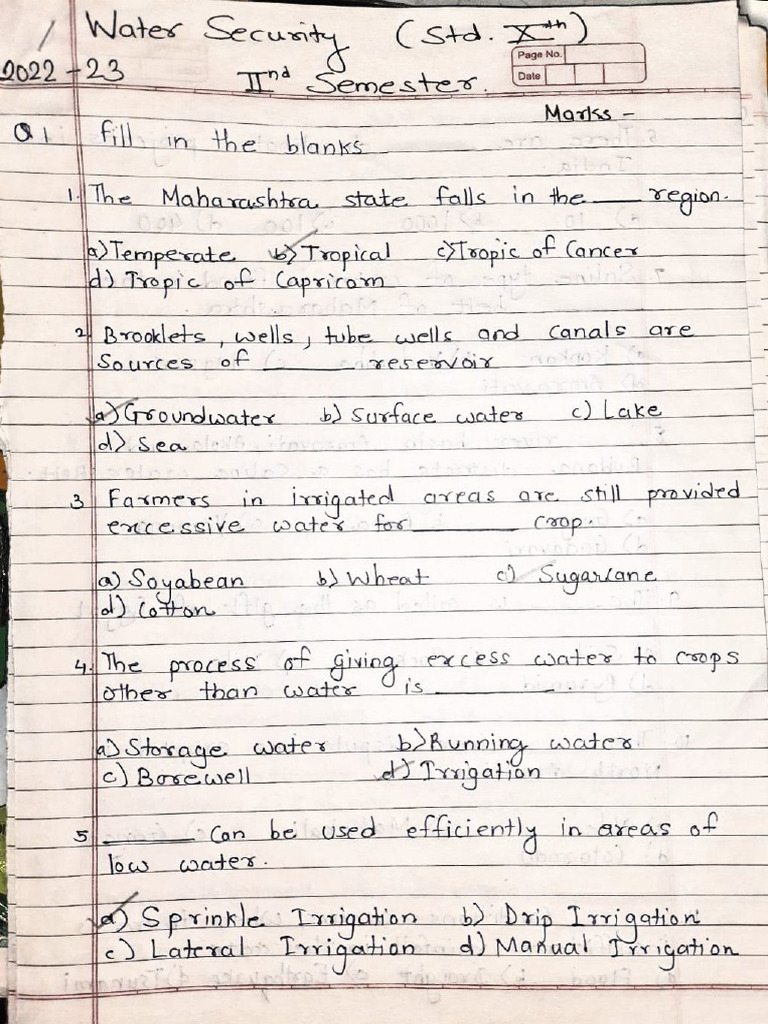 Water Security (Std. Xth)
2022-23 IInd Semester.
Page No.
Date
Marks -
Q1 fill in the blanks
1. The Maharashtra state falls in the ___ region.
a) Temperate b) Tropical c) Tropic of Cancer
d) Tropic of Capricorn
2 Brooklets, wells, tube wells and canals are
Sources of ______ reservoir
a) Groundwater b) Surface water c) Lake
d) Sea
3 Farmers in irrigated areas are still provided
excessive water for ______ crop.
a) Soyabean b) Wheat c) Sugarcane
d) Cotton
4. The process of giving excess water to crops
other than water is ______.
a) Storage water b) Running water
c) Borewell d) Irrigation
5 ______ Can be used efficiently in areas of
low water.
a) Sprinkle Irrigation b) Drip Irrigation
c) Lateral Irrigation d) Manual Irrigation